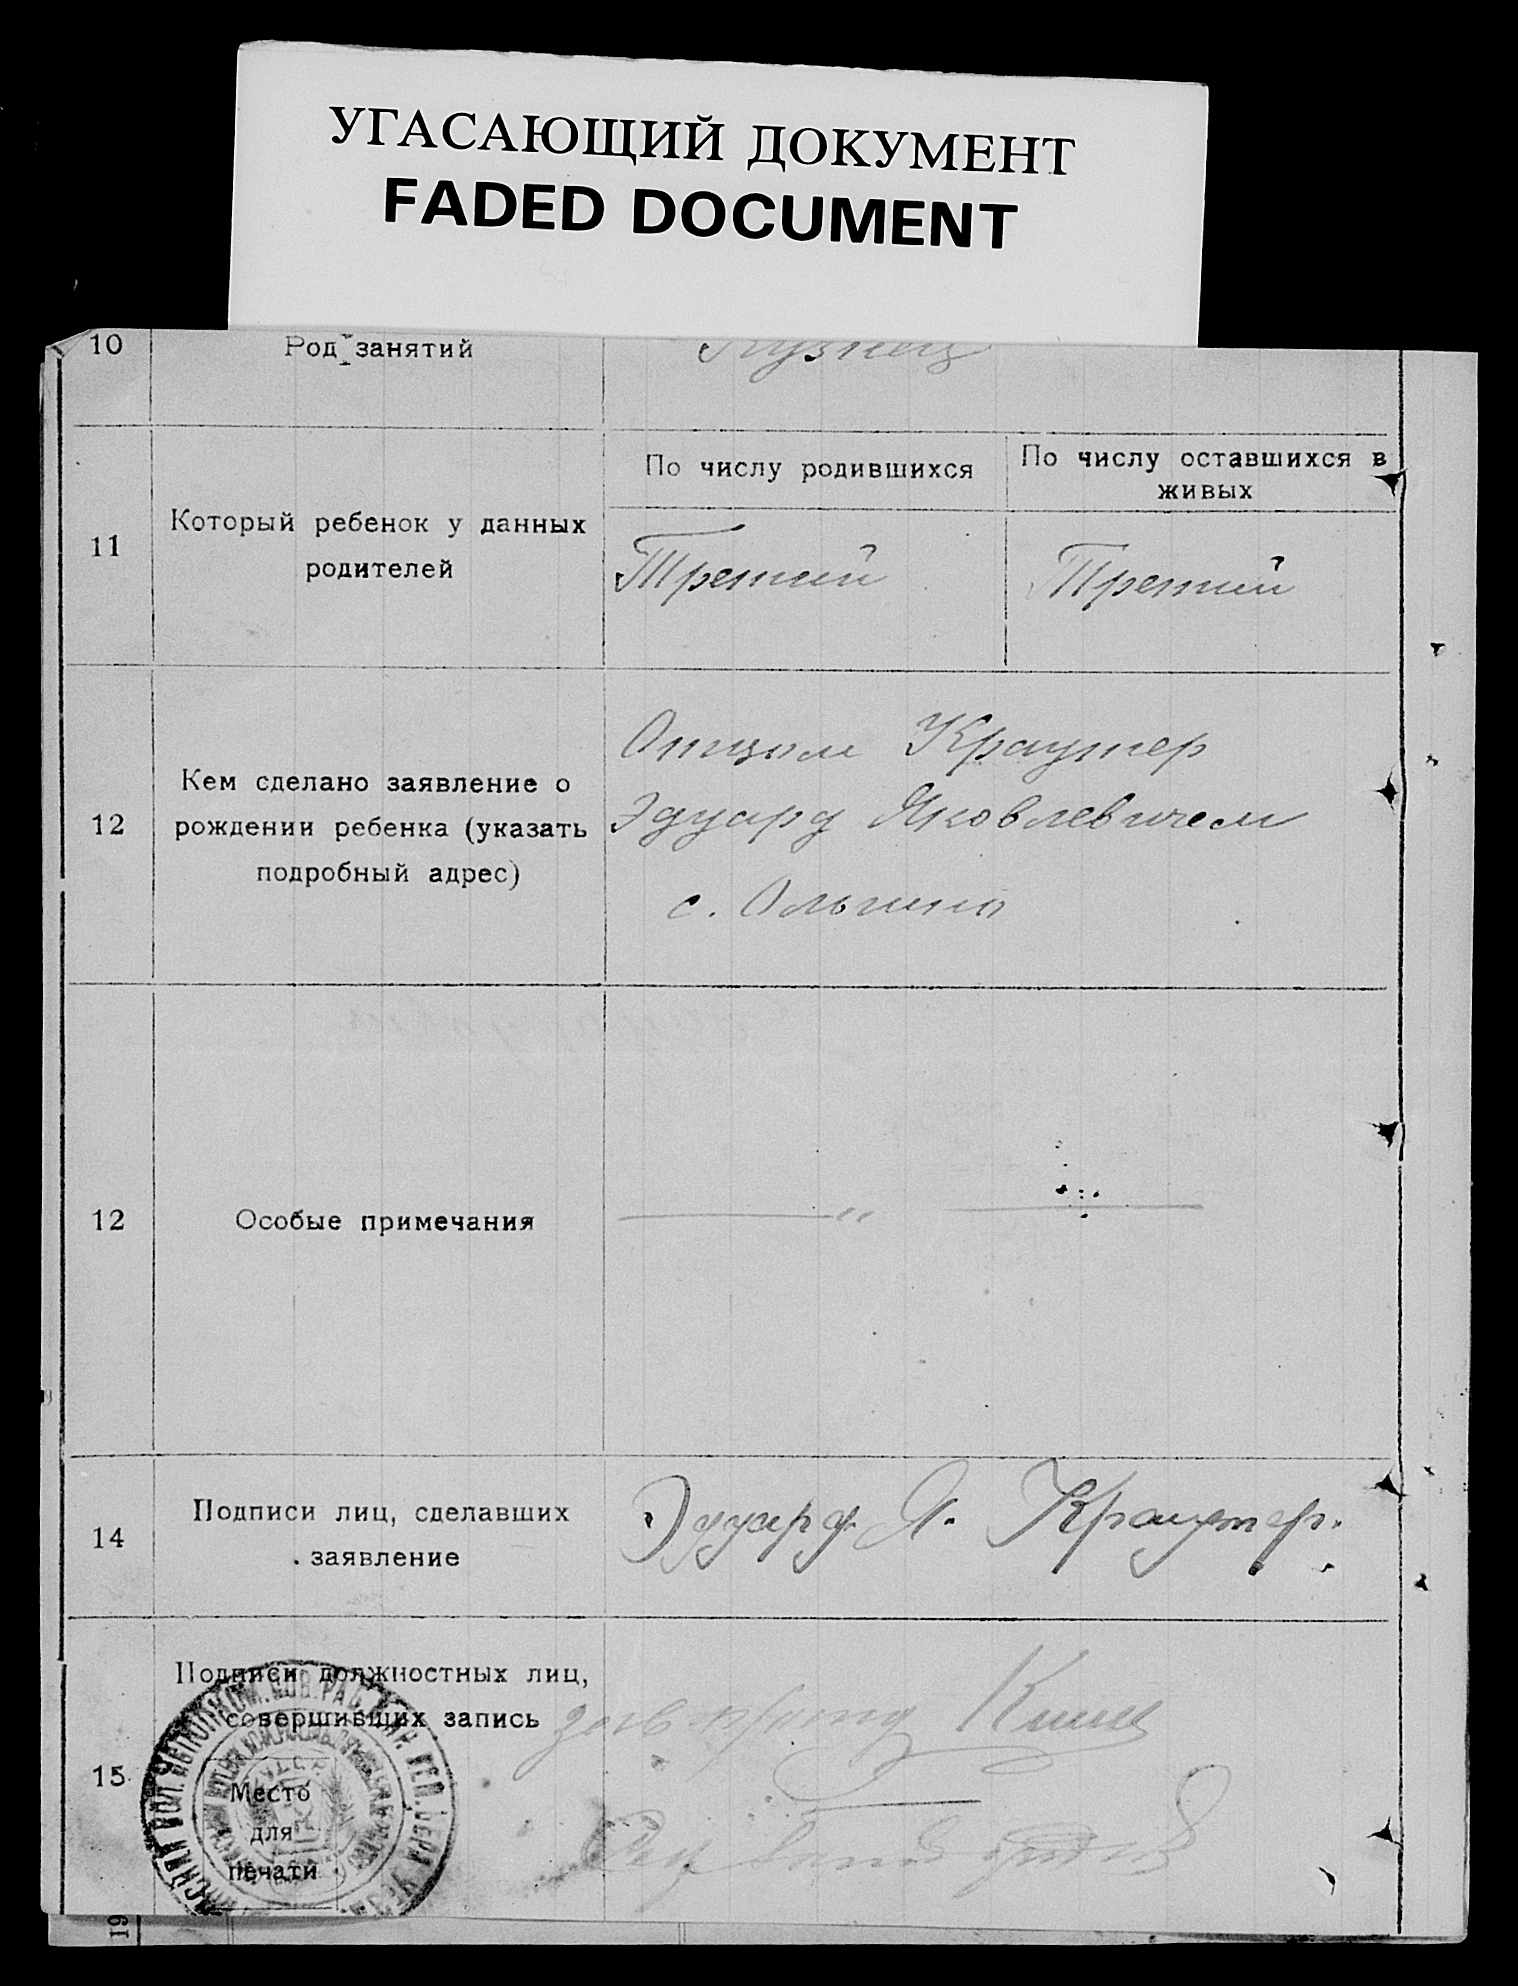 УГАСАЮЩИЙ ДОКУМЕНТ
FADED DOCUMENT
10 Род занятий Кузнец
По числу родившихся
По числу оставшихся в
живых
11 Который ребенок у данных
родителей
Третий Третий
12 Кем сделано заявление о
рождении ребенка (указать
подробный адрес)
Отцом Краутер
Эдуард Яковлевичем
с. Ольгино
12 Особые примечания
14 Подписи лиц, сделавших
заявление
Эдуард. Я. Краутер.
15 Подписи должностных лиц,
совершивших запись
Место
для
печати
19